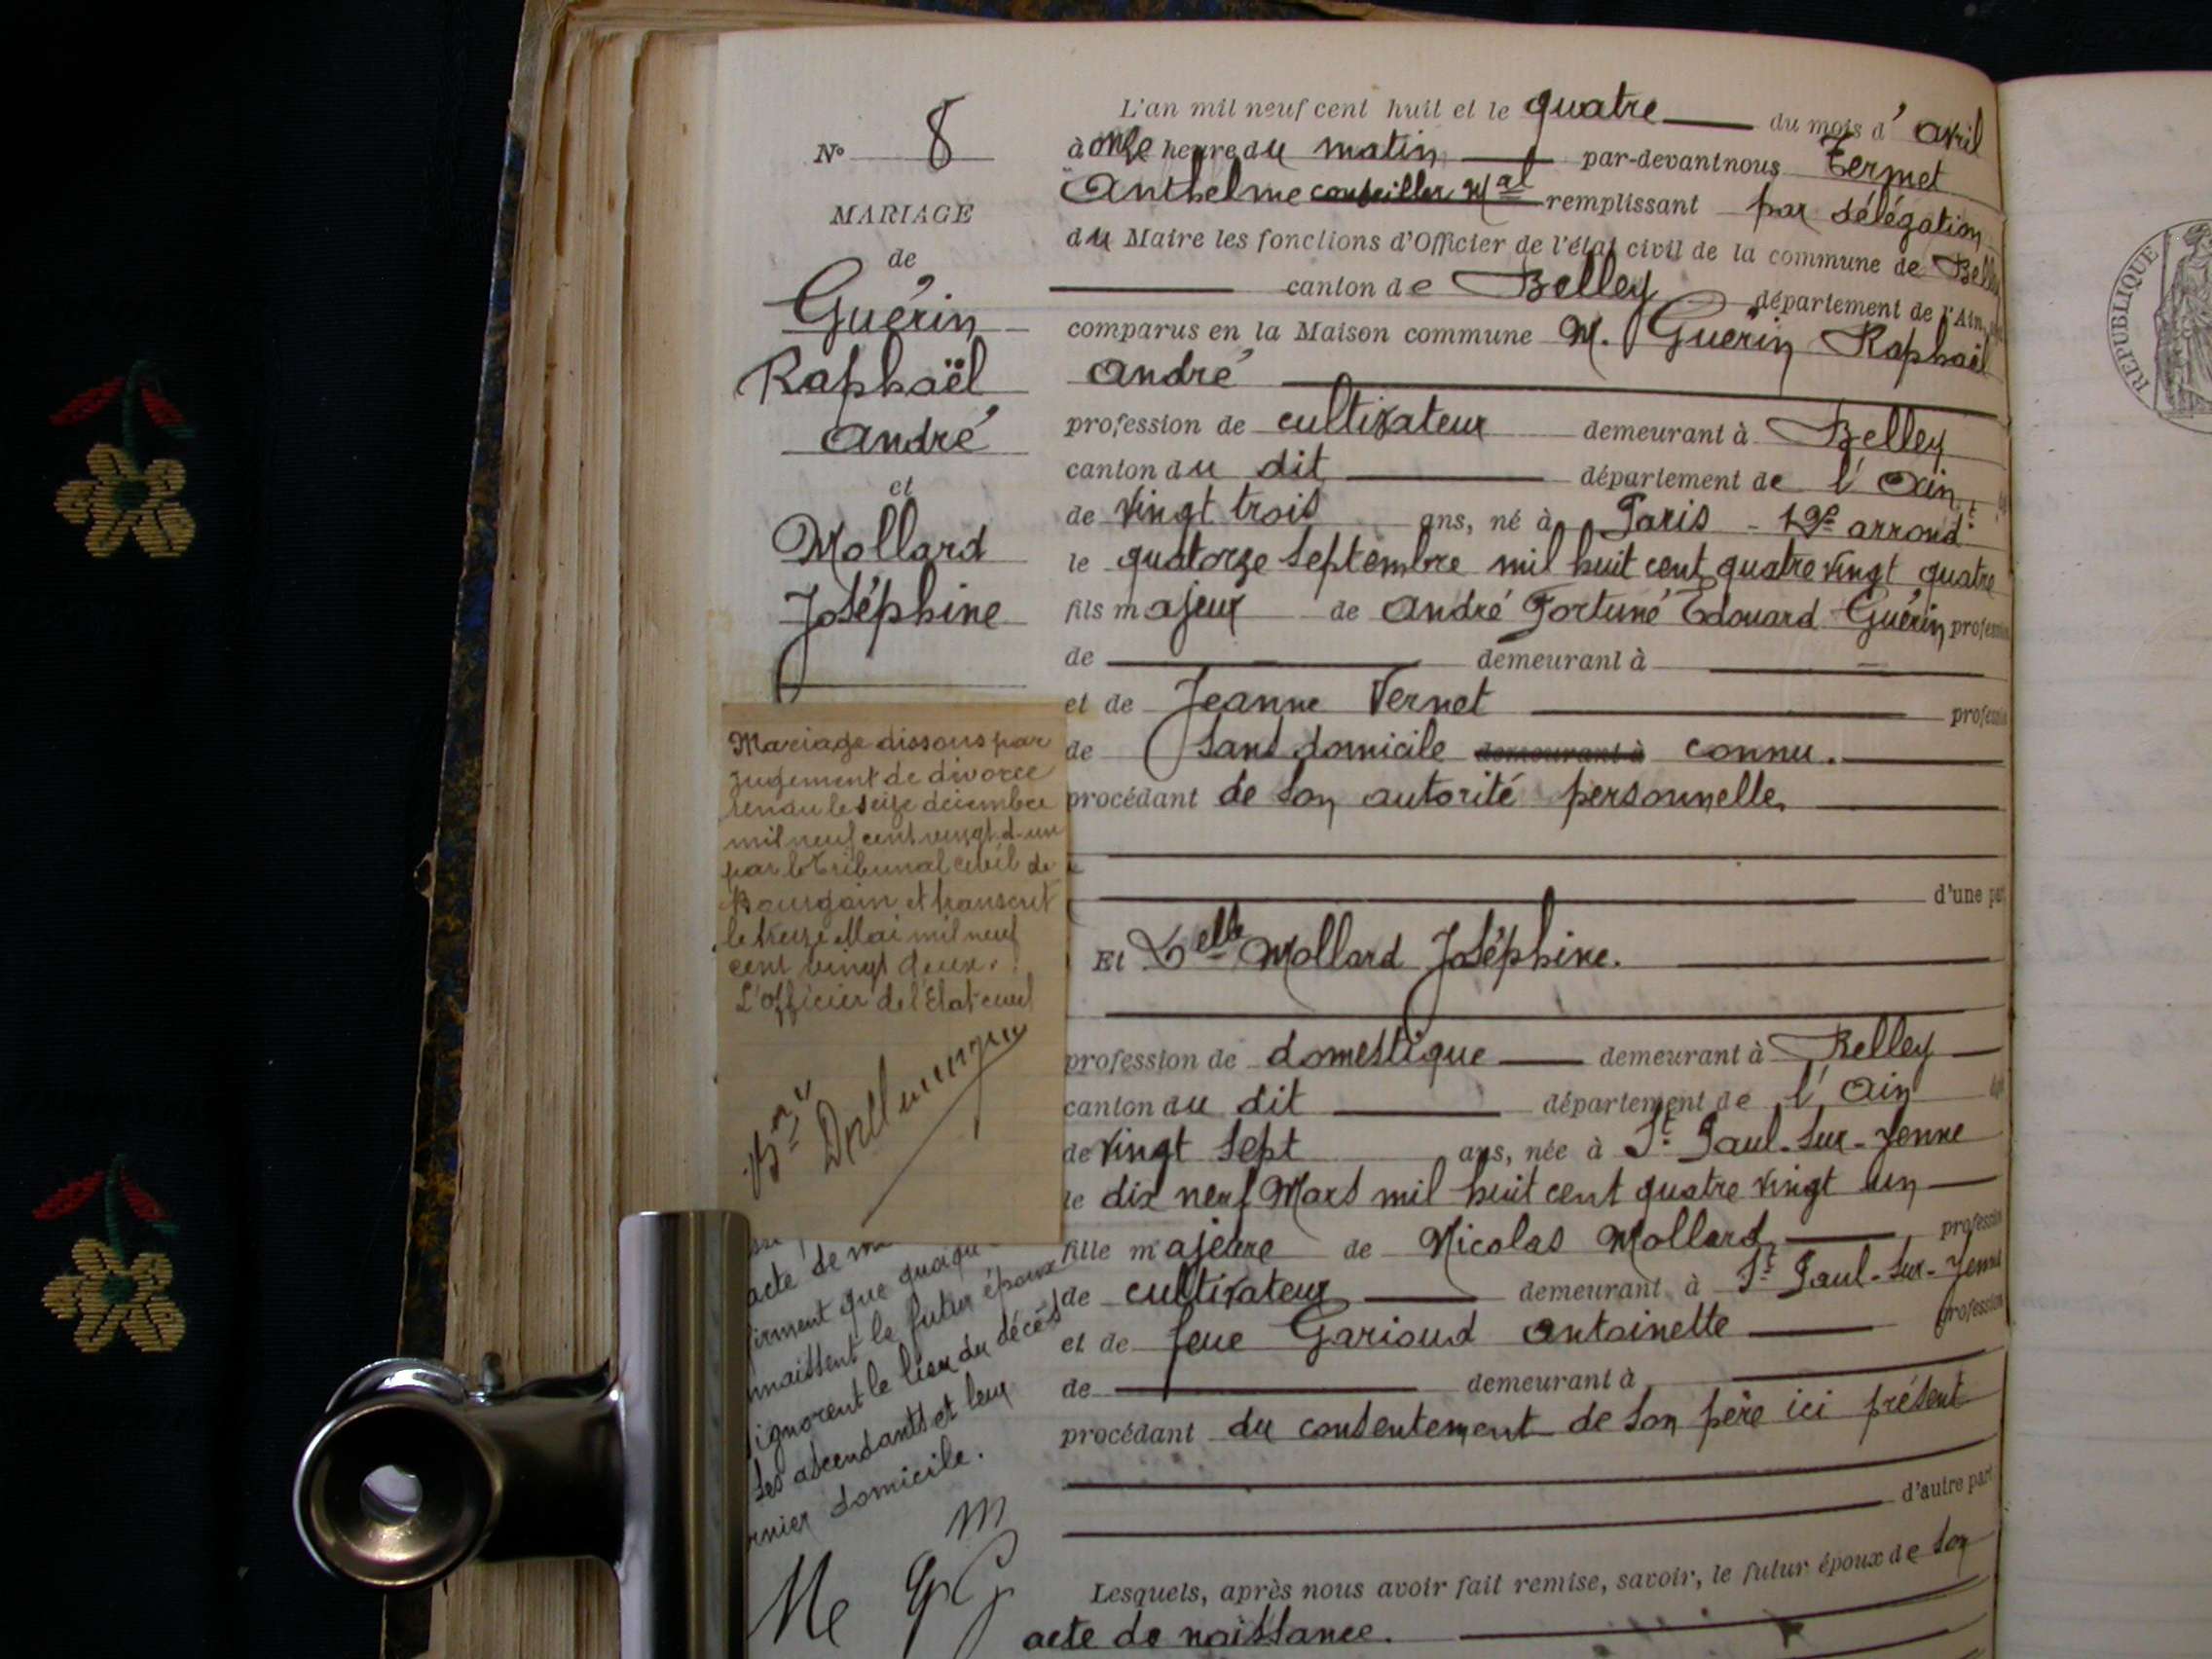 N° 8
MARIAGE
de
Guérin
Raphaël
André
et
Mollard
Joséphine
Mariage dissous par
jugement de divorce
rendu le seize décembre
mil neuf cent vingt-d-un
par le Tribunal civil de
Bourgoin et transcrit
le treize Mai mil neuf
cent vingt deux.
L'officier de l'Etat-civil
acte de
que quoiqu
naissent le futur époux
ignorent le lieu du décès
des ascendants et leur
rnier domicile.
L'an mil neuf cent huit et le quatre du mois d'avril
à onze heure du matin par-devant nous Termet
Anthelme conseiller Mal remplissant par délégation
du Maire les fonctions d'Officier de l'état civil de la commune de Belle
canton de Belley département de l'Ain,
comparus en la Maison commune M. Guérin Raphaël
André
profession de cultivateur demeurant à Belley
canton du dit département de l'Ain,
de vingt trois ans, né à Paris - 19e arrondt
le quatorze septembre mil huit cent quatre vingt quatre
fils majeur de André Fortuné Edouard Guérin profession
de demeurant à
et de Jeanne Vernet profession
de sans domicile demeurant à connu.
procédant de son autorité personnelle,
d'une par
Et Delle Mollard Joséphine.
profession de domestique demeurant à Belley
canton du dit département de l'Ain
de vingt sept ans, née à St Paul-sur-Yenne
le dix neuf Mars mil huit cent quatre vingt un
fille majeure de Nicolas Mollard profession
de cultivateur demeurant à St Paul-sur-Yenne
et de feue Garioud Antoinette profession
de demeurant à
procédant du consentement de son père ici présent
d'autre part
Lesquels, après nous avoir fait remise, savoir, le futur époux de son
acte de naissance.
REPUBLIQUE